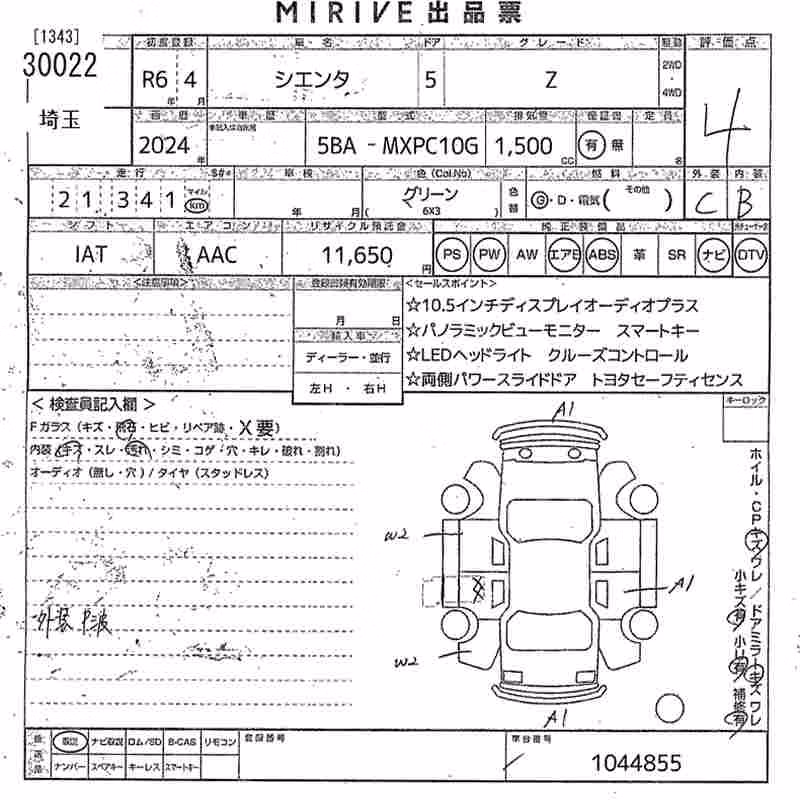 MIRIVE 出品票
[1343]
30022
埼玉
初度登録 車名 ドア グレード 駆動 評価点
R6 4 シエンタ 5 Z 2WD・4WD 4
年 月
音歴 車歴 型式 排気量 保証書 定員
2024 年 5BA - MXPC10G 1,500 CC 有 無 名
走行 車検 色(Col.No) 燃料 外装 内装
21 341 マイル km 年 月 グリーン ( 6X3 ) 色替 G・D・電気( その他 ) C B
シフト エアコン リサイクル預託金 純正装備品
IAT AAC 11,650 円 PS PW AW エアB ABS 革 SR ナビ DTV
<注意事項> 登録書類有効期限 <セールスポイント>
月 日
☆10.5インチディスプレイオーディオプラス
輸入車
☆パノラミックビューモニター スマートキー
ディーラー・並行
☆LEDヘッドライト クルーズコントロール
左H ・ 右H
☆両側パワースライドドア トヨタセーフティセンス
<検査員記入欄> キーロック
Fガラス(キズ・飛石・ヒビ・リペア跡・X要)
内装(キズ・スレ・汚れ・シミ・コゲ・穴・キレ・破れ・割れ)
オーディオ(無し・穴)/タイヤ(スタッドレス)
A1
W2
X
A1
W2
A1
外装 P波
ホイル・CPキズワレ/ドアミラーキズワレ
小キズ有 小U有 補修有
取説 ナビ取説 ロム/SD B-CAS リモコン 登録番号 車台番号
ナンバー スペアキー キーレス スマートキー 1044855